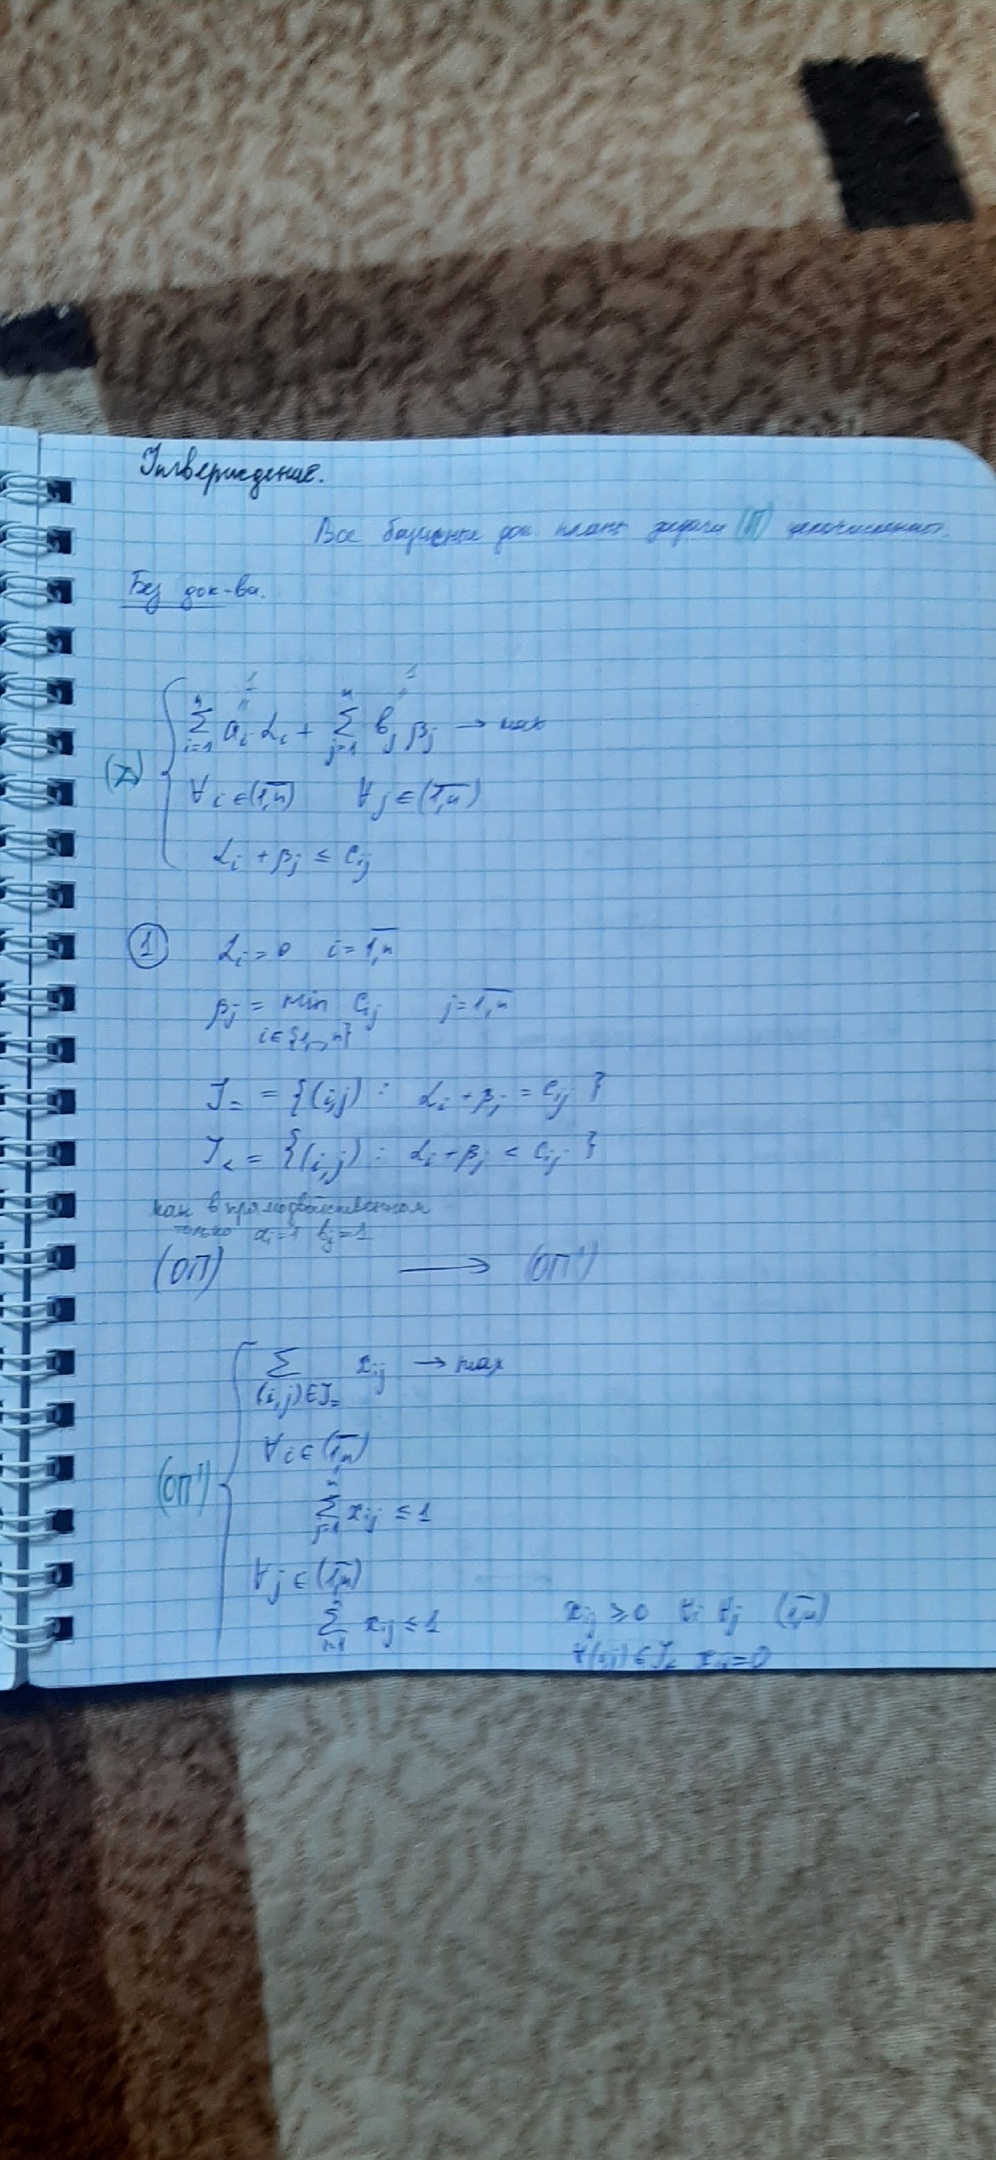 Утверждение.
Все базисные доп. планы задачи (П) целочисленны.
Без док-ва.
(Д) { ∑_{i=1}^{n} a_i α_i + ∑_{j=1}^{n} b_j β_j → max (a_i = 1, b_j = 1)
∀ i ∈ (1,n) ∀ j ∈ (1,n)
α_i + β_j ≤ c_ij
① α_i = 0 i = 1,n
β_j = min c_ij j = 1,n
i ∈ {1,..,n}
J_= = {(i,j) : α_i + β_j = c_ij }
J_< = {(i,j) : α_i + β_j < c_ij }
как в прямодвойственном
только a_i=1 b_j=1
(ОП) → (ОП')
(ОП') { ∑_{(i,j)∈J_=} x_ij → max
∀ i ∈ (1,n)
∑_{j=1}^{n} x_ij ≤ 1
∀ j ∈ (1,n)
∑_{i=1}^{n} x_ij ≤ 1 x_ij ≥ 0 ∀i ∀j (1,n)
∀(i,j) ∈ J_< x_ij = 0